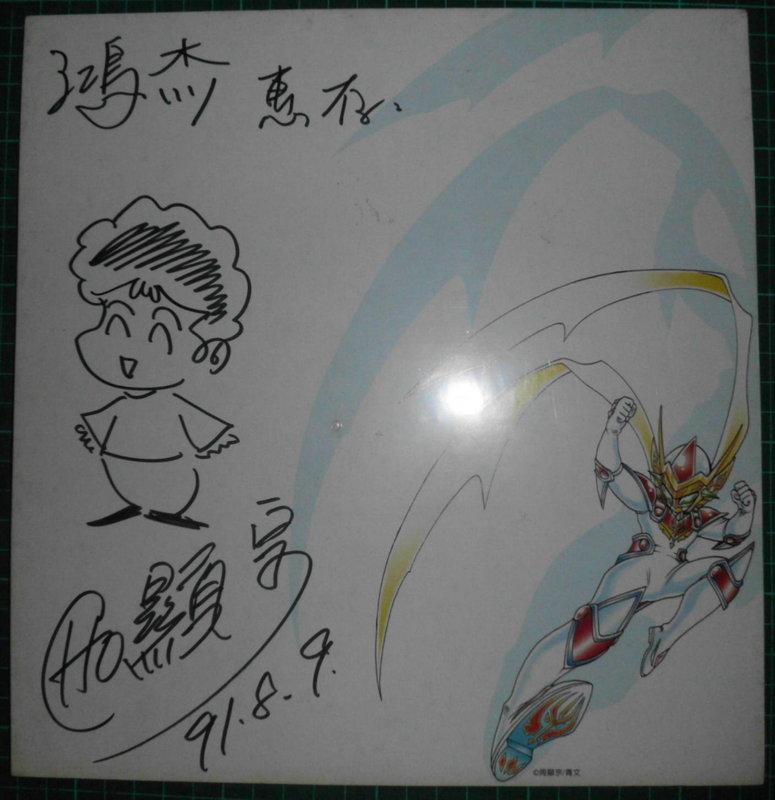 鴻杰 惠存、
周顯宗
91.8.9.
©周顯宗/青文